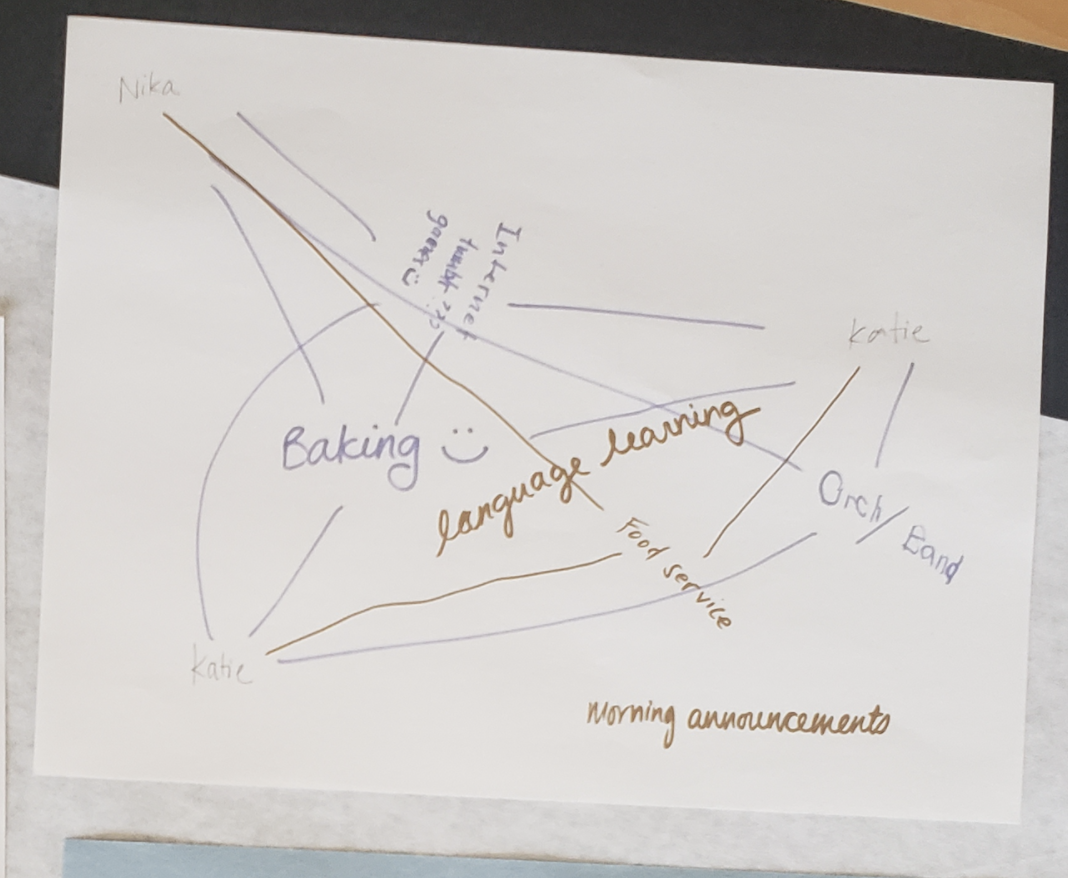 Nika
Internet
goers ü
Katie
Baking ü
language learning
Orch/Band
Food service
Katie
Morning announcements